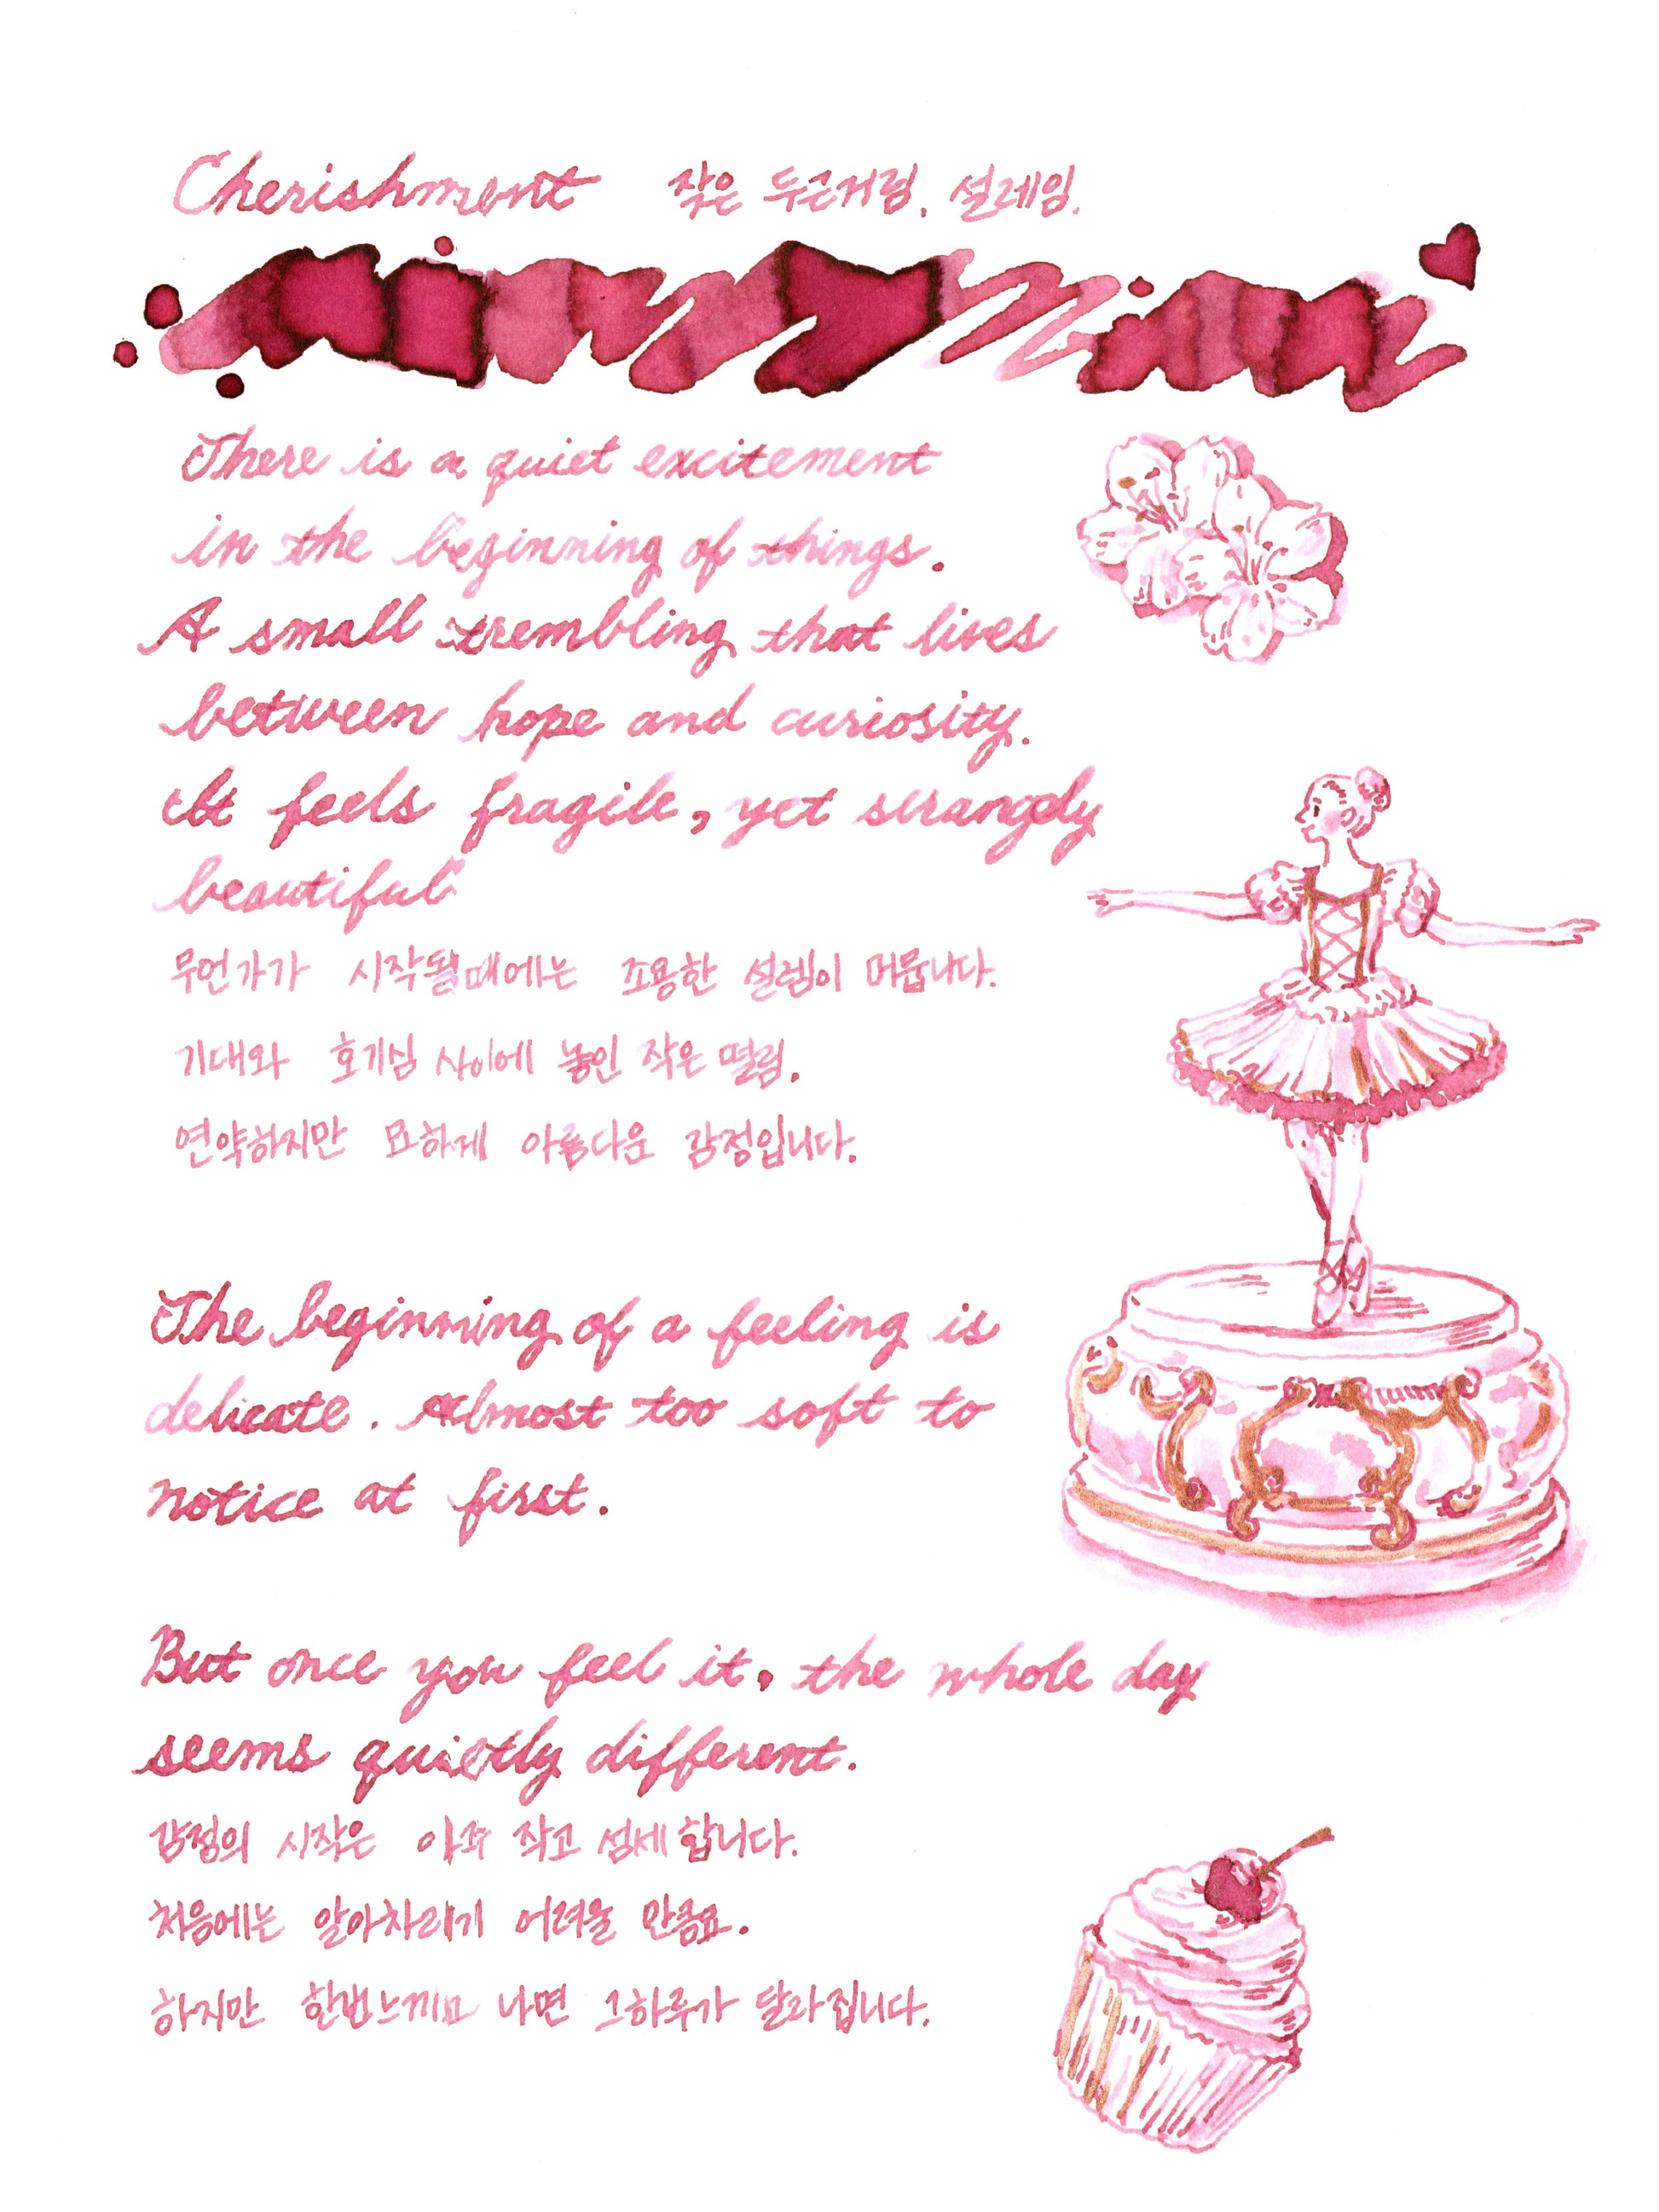 Cherishment 작은 두근거림. 설레임.
There is a quiet excitement
in the beginning of things.
A small trembling that lives
between hope and curiosity.
It feels fragile, yet strangely
beautiful
무언가가 시작될때에는 조용한 설렘이 머뭅니다.
기대와 호기심 사이에 놓인 작은 떨림.
연약하지만 묘하게 아름다운 감정입니다.
The beginning of a feeling is
delicate. Almost too soft to
notice at first.
But once you feel it, the whole day
seems quietly different.
감정의 시작은 아주 작고 섬세합니다.
처음에는 알아차리기 어려울 만큼요.
하지만 한번느끼고 나면 그하루가 달라집니다.